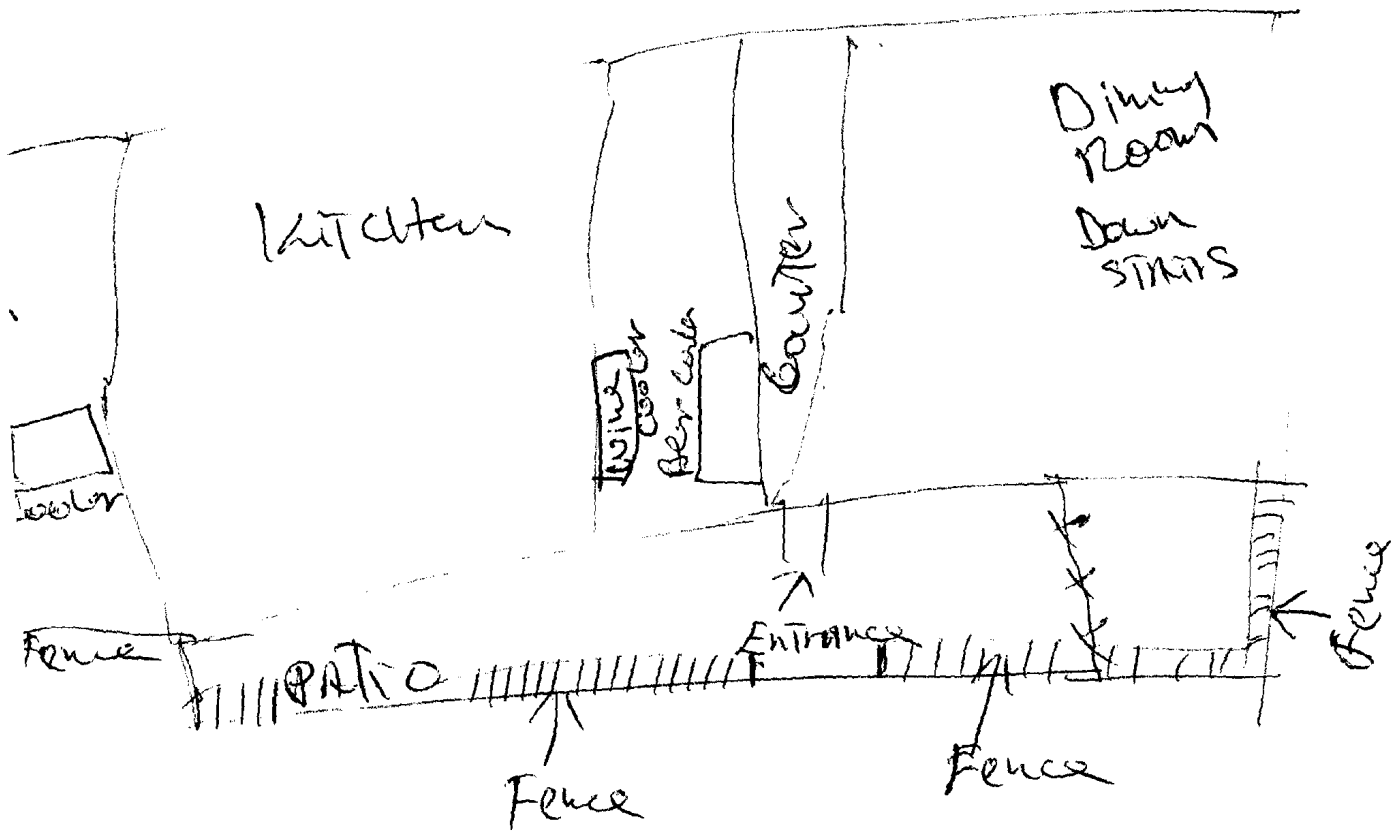 Dining
Room
Down
STAIRS
Kitchen
Counter
Wine
Cooler
Beer Cooler
Cooler
Fence
Entrance
PATIO
Fence
Fence
Fence